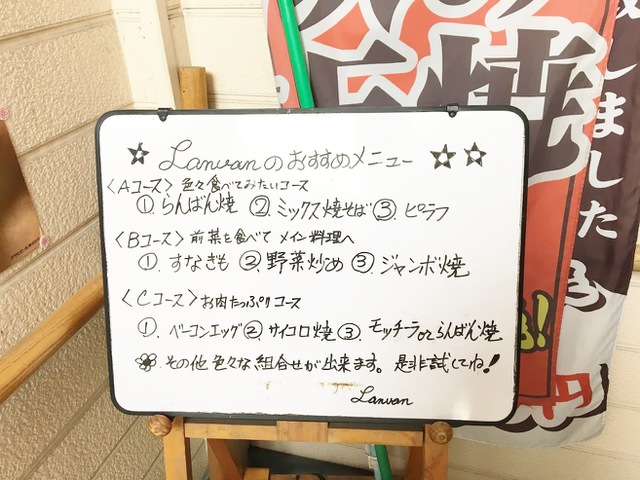 ☆ Lanvanのおすすめメニュー ☆☆
〈Aコース〉色々食べてみたいコース
① らんばん焼 ② ミックス焼そば ③ ピラフ
〈Bコース〉前菜を食べて メイン料理へ
① すなぎも ② 野菜炒め ③ ジャンボ焼
〈Cコース〉お肉たっぷりコース
① ベーコンエッグ ② サイコロ焼 ③ モッチラorらんばん焼
その他 色々な組合せが出来ます。是非試してね!
Lanvan
焼
しました